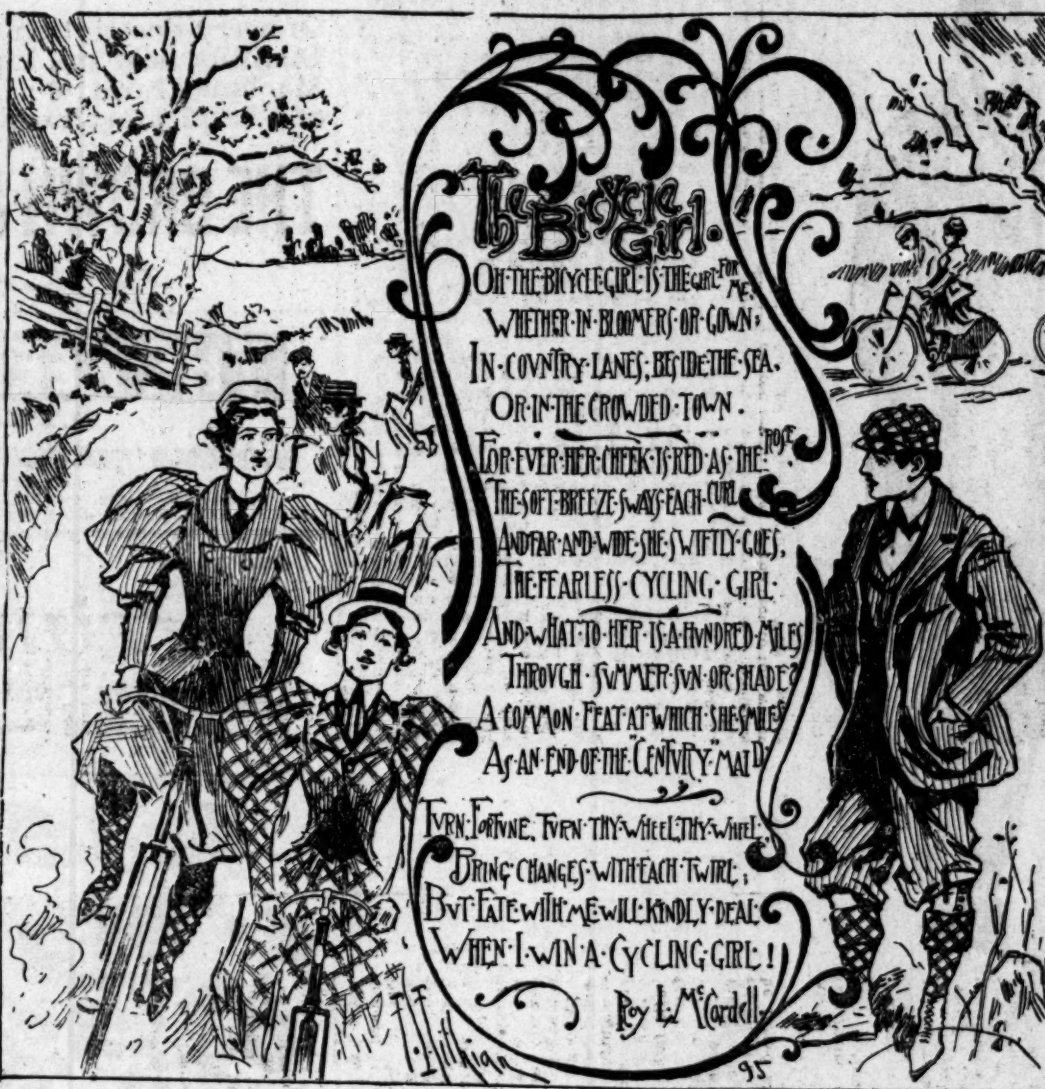 The Bicycle Girl.
OH·THE·BICYCLE·GIRL·IS·THE·GIRL·FOR ME,
WHETHER·IN·BLOOMERS·OR·GOWN;
IN·COVNTRY·LANES; BESIDE·THE·SEA,
OR·IN·THE CROWDED·TOWN.
FOR·EVER·HER·CHEEK·IS·RED·AS·THE·ROSE.
THE·SOFT·BREEZE·SWAYS·EACH·CURL
AND FAR·AND·WIDE·SHE·SWIFTLY·GOES,
THE·FEARLESS·CYCLING·GIRL·
AND·WHAT·TO·HER·IS·A·HVNDRED·MILES
THROVGH·SVMMER·SVN·OR·SHADE?
A·COMMON·FEAT·AT·WHICH·SHE·SMILES
AS·AN·END·OF·THE "CENTVRY" MAID
TVRN·FORTVNE, TVRN·THY·WHEEL, THY·WHEEL,
BRING·CHANGES·WITH·EACH·TWIRL;
BVT·FATE·WITH·ME·WILL·KINDLY·DEAL
WHEN·I·WIN·A·CYCLING·GIRL!
Roy L. McCardell.
95